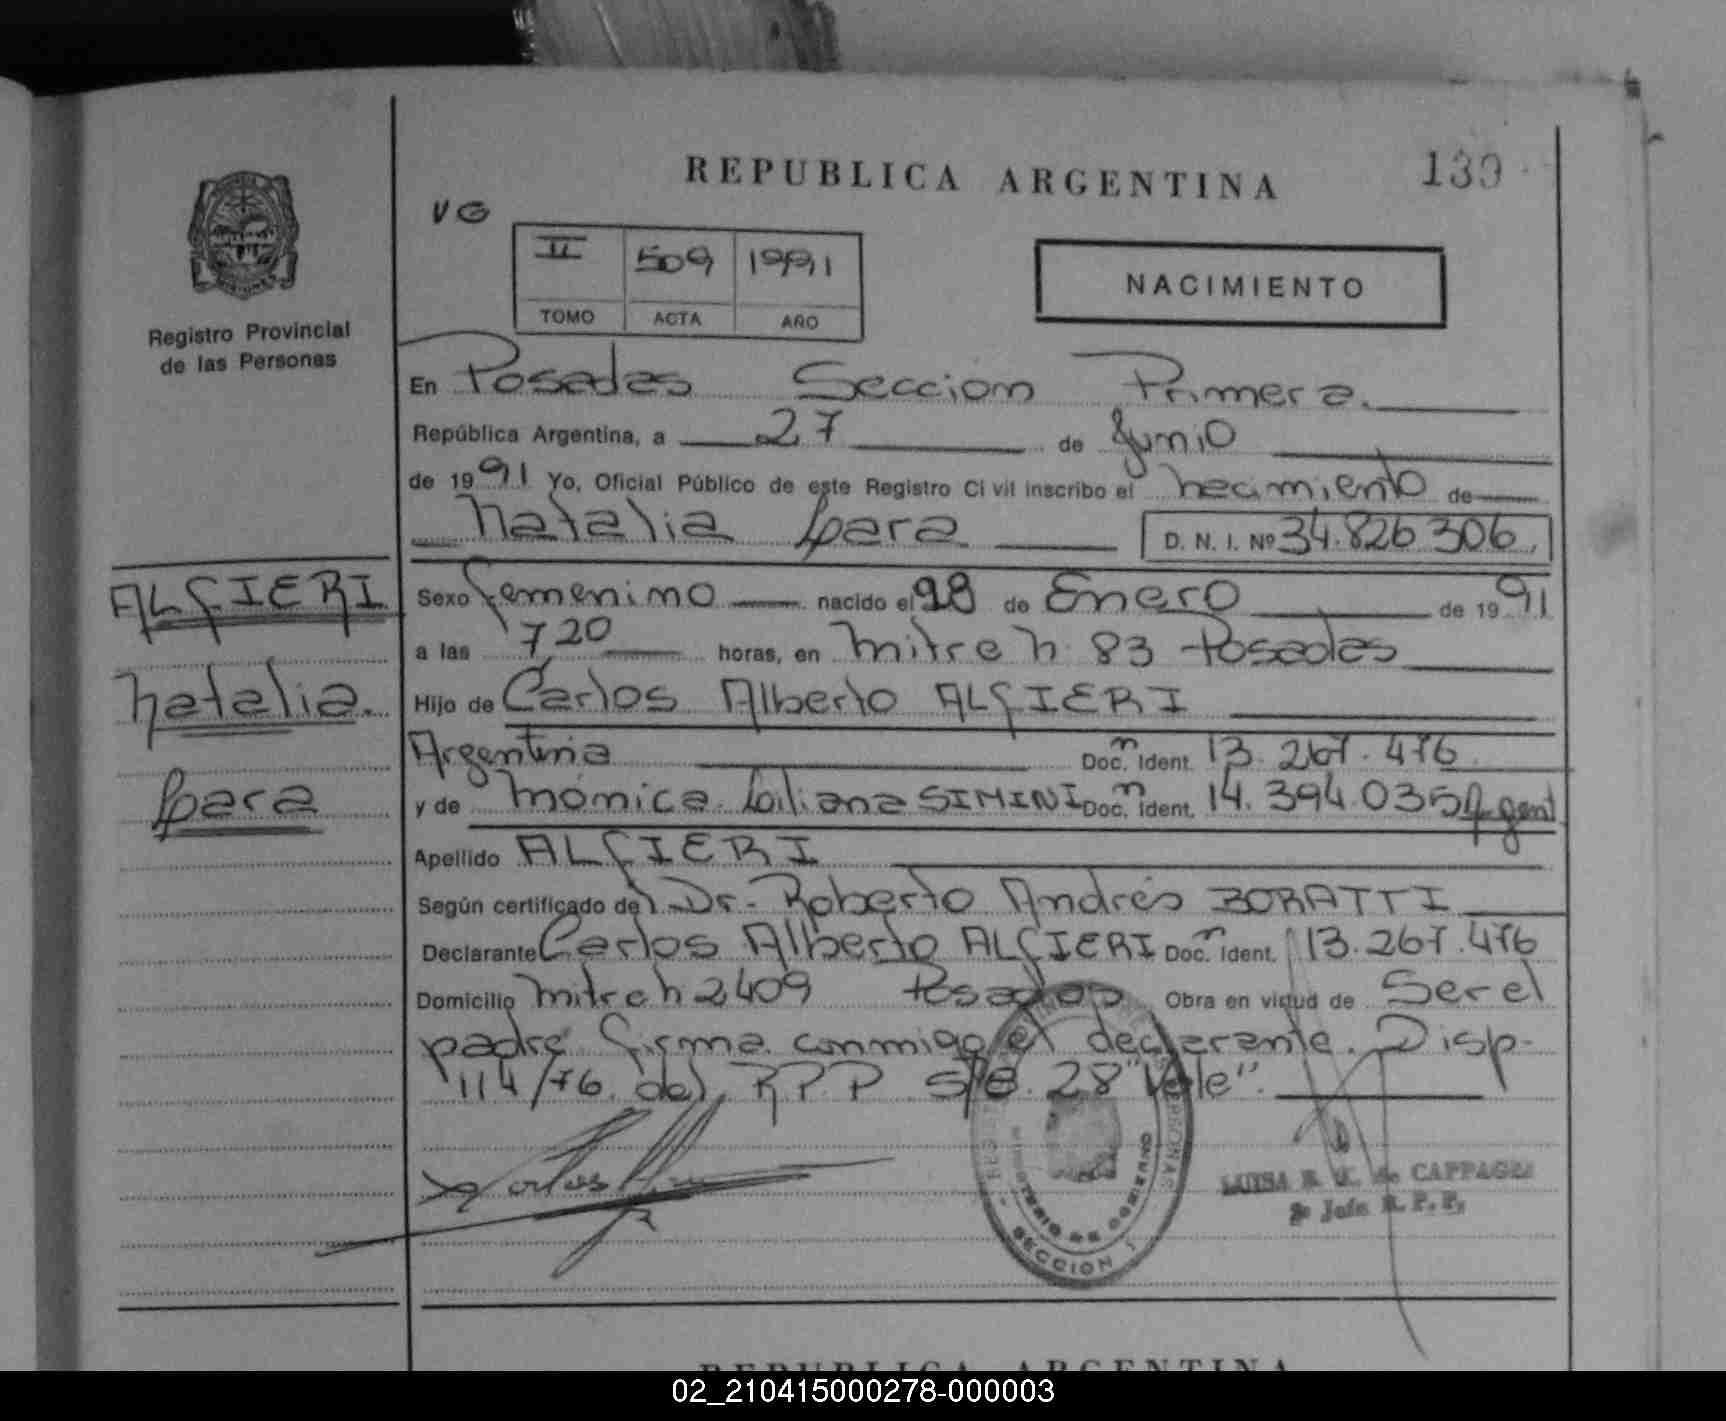 REPUBLICA ARGENTINA
139
VG
II 509 1991
TOMO ACTA AÑO
NACIMIENTO
Registro Provincial
de las Personas
En Posadas Seccion Primera.
República Argentina, a 27 de Junio
de 1991 Yo, Oficial Público de este Registro Civil inscribo el nacimiento de
Natalia Lara D. N. I. Nº 34.826.306
ALFIERI
Natalia
Lara
Sexo femenino nacido el 28 de Enero de 1991
a las 720 horas, en Mitre n 83 Posadas
Hijo de Carlos Alberto ALFIERI
Argentina Doc. n Ident. 13.267.476
y de Mónica Liliana SIMINI Doc. n Ident. 14.394.035 Argent
Apellido ALFIERI
Según certificado del Dr. Roberto Andrés BORATTI
Declarante Carlos Alberto ALFIERI Doc. n Ident. 13.267.476
Domicilio Mitre n 2409 Posadas Obra en virtud de Ser el
padre firma conmigo el declarante. Disp-
114/76. del R.P.P S/e. 28 "Vale".
MINISTERIO DE GOBIERNO
SECCION 1
LUISA de CAPPAGLI
Jefe R.P.P.
REPUBLICA ARGENTINA
02_210415000278-000003